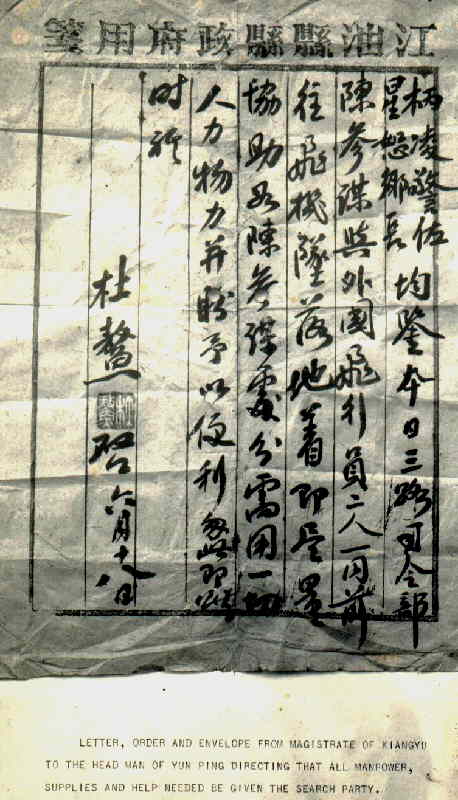 江油縣縣政府用箋
柄凌警佐
星恕鄉長
均鑒本日三路司令部
陳參謀與外國飛行員二人一同前
往飛機墜落地着即尽量
協助陳參謀處分需用一切
人力物力并盼予以便利為此即頌
時祺
杜鰲 啓 六月十八日
LETTER, ORDER AND ENVELOPE FROM MAGISTRATE OF KIANGYU
TO THE HEAD MAN OF YUN PING DIRECTING THAT ALL MANPOWER,
SUPPLIES AND HELP NEEDED BE GIVEN THE SEARCH PARTY.